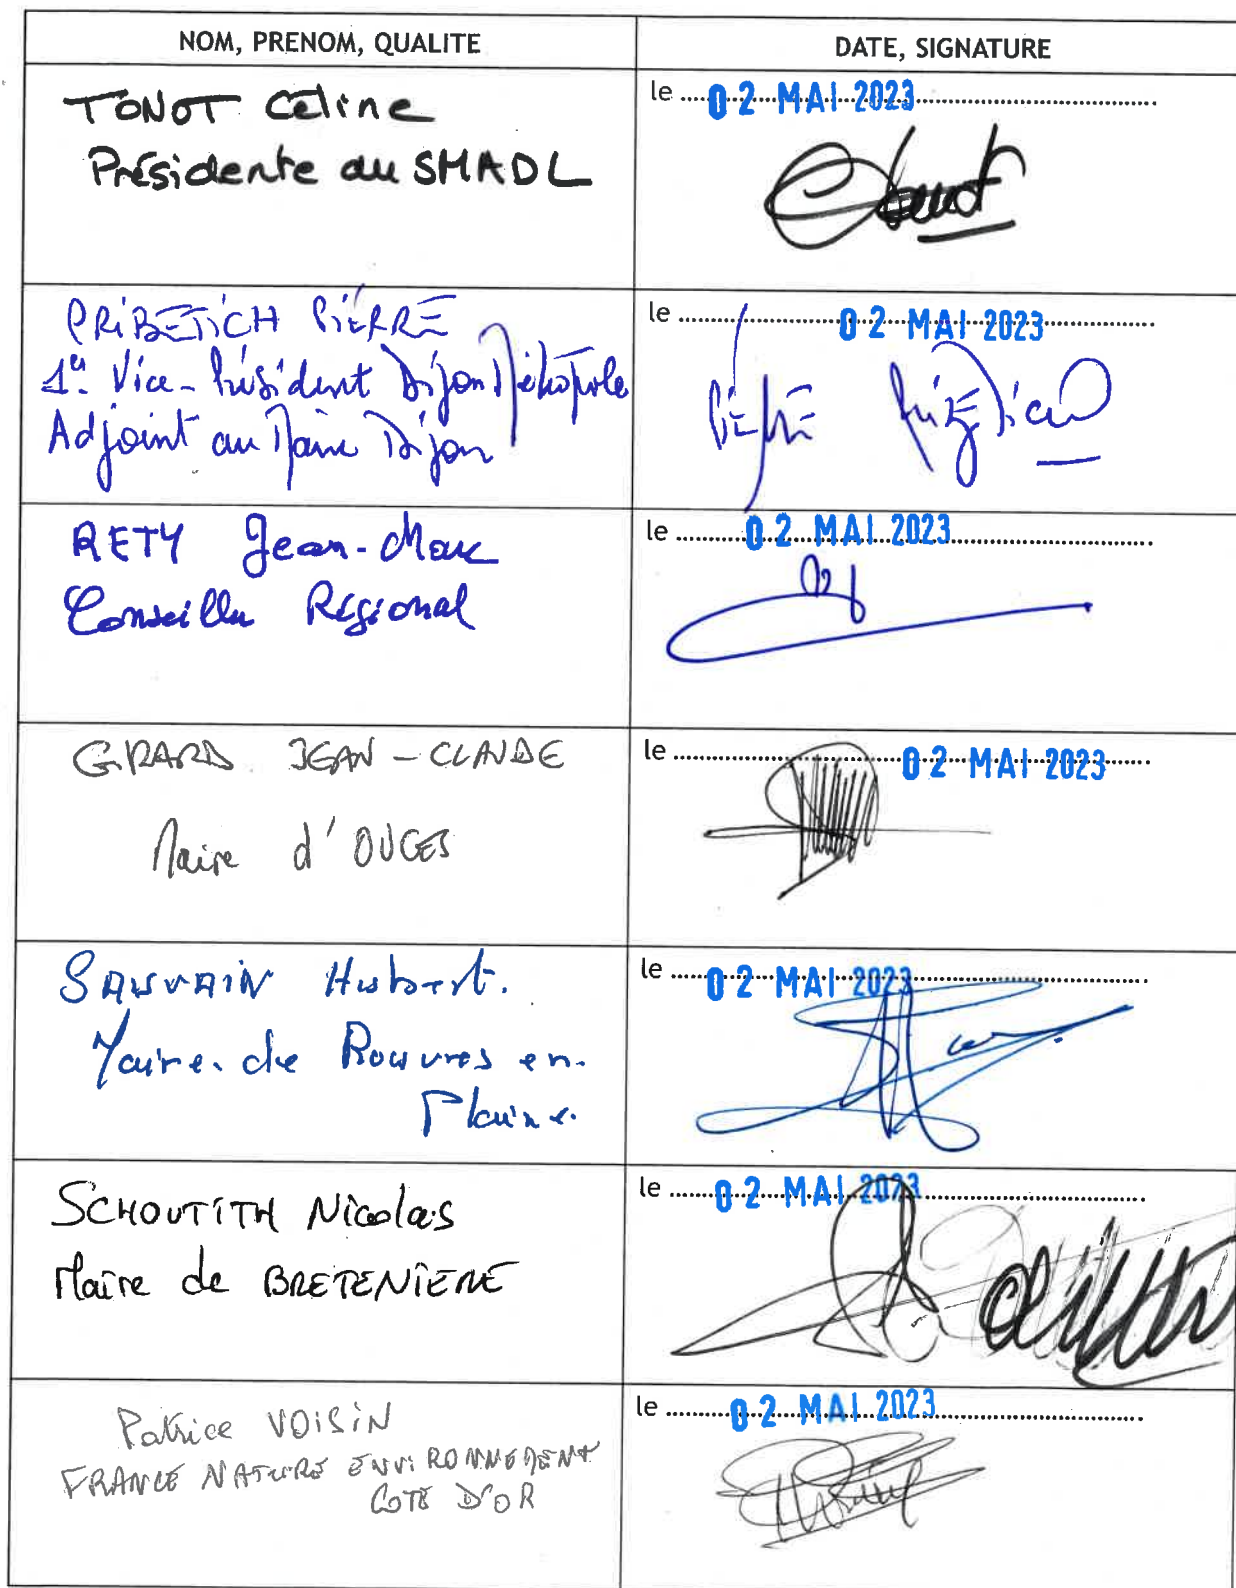 NOM, PRENOM, QUALITE
DATE, SIGNATURE
TONOT Céline
Présidente du SMADL
le 02 MAI 2023
PRIBETICH PIERRE
1er Vice-Président Dijon Métropole
Adjoint au Maire Dijon
le 02 MAI 2023
RETY Jean-Marc
Conseiller Régional
le 02 MAI 2023
GIRARD JEAN-CLAUDE
Maire d'OUGES
le 02 MAI 2023
SAUVAIN Hubert.
Maire de Rouvres en
Plaine.
le 02 MAI 2023
SCHOUTITH Nicolas
Maire de BRETENIERE
le 02 MAI 2023
Patrice VOISIN
FRANCE NATURE ENVIRONNEMENT
COTE D'OR
le 02 MAI 2023